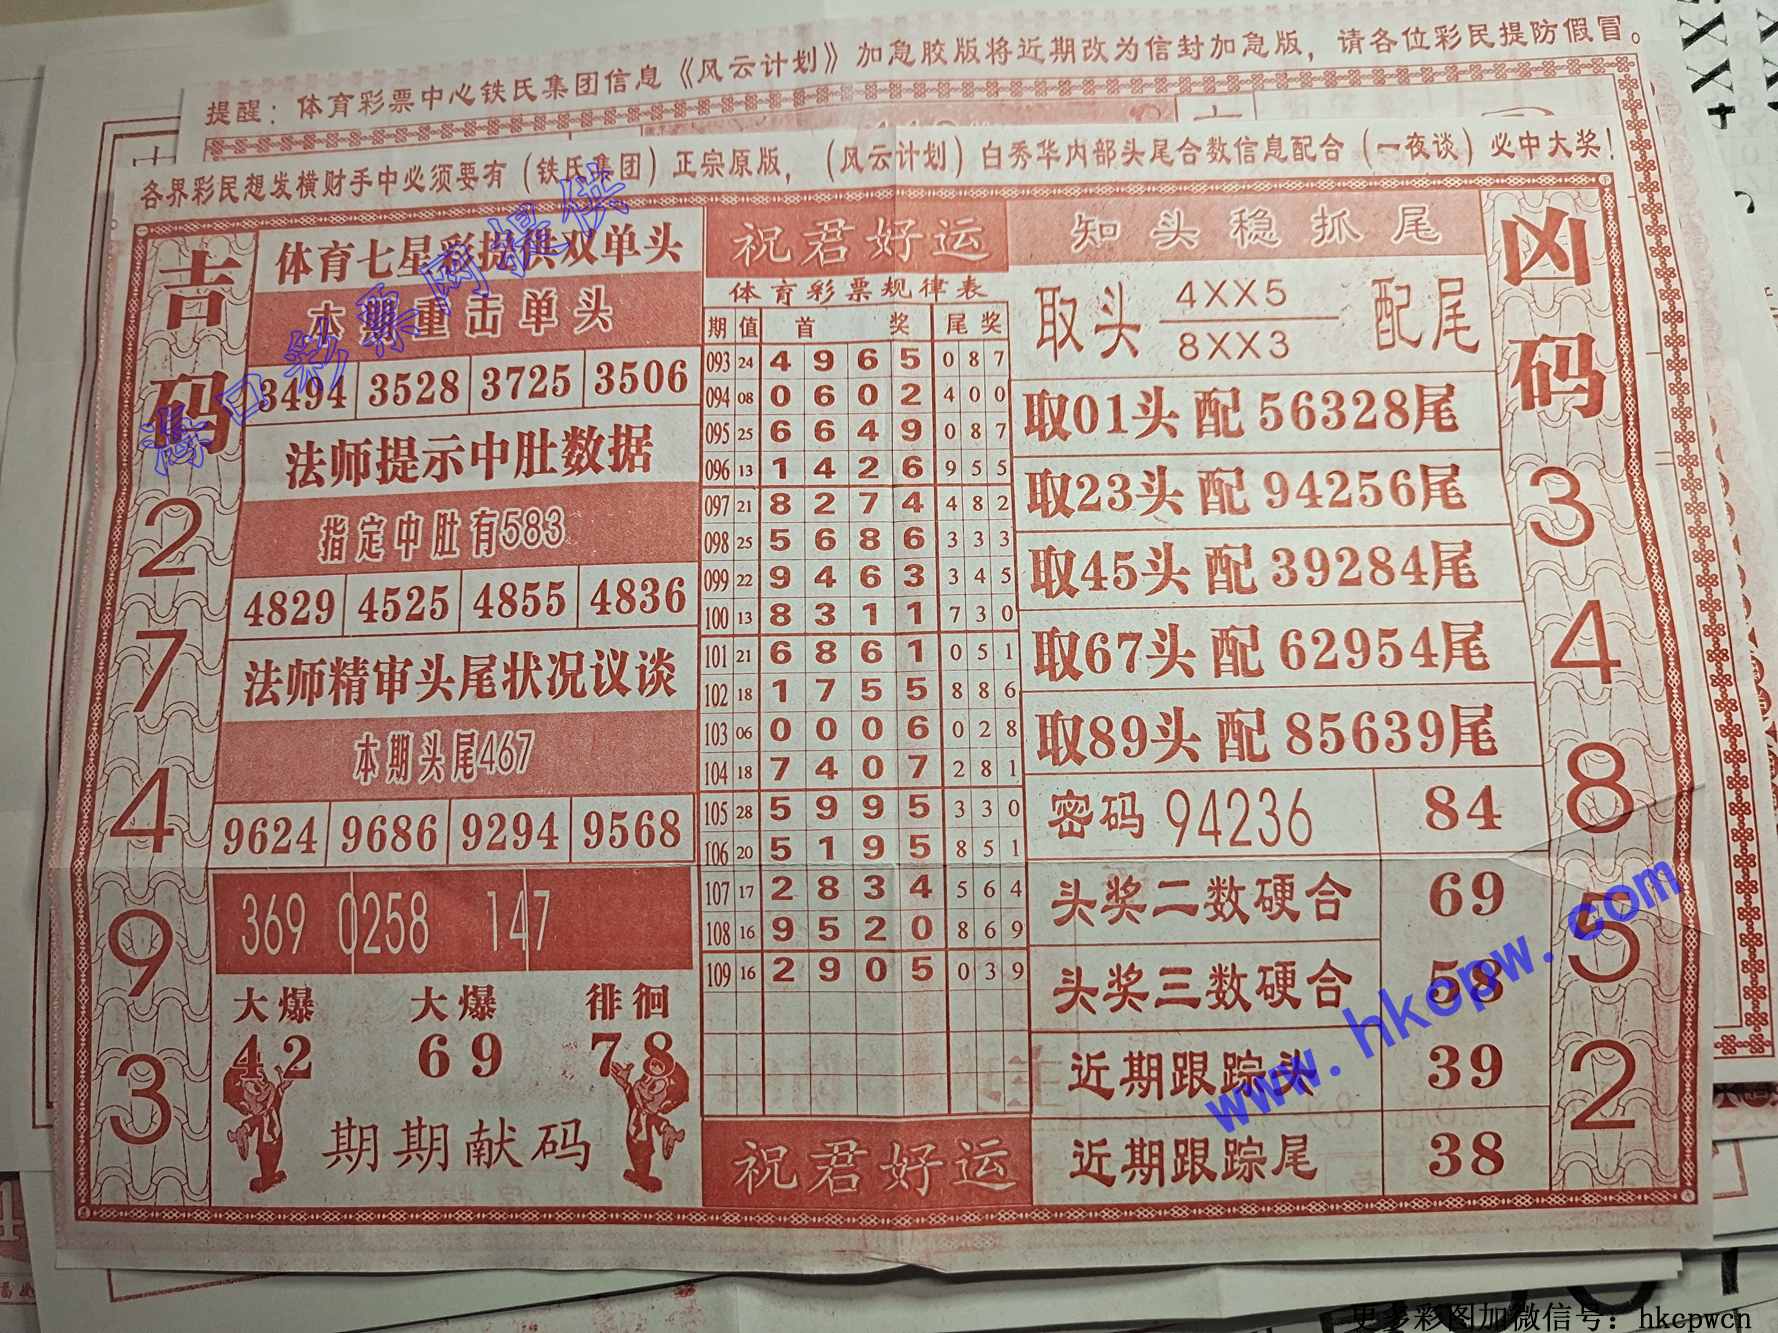 提醒：体育彩票中心铁氏集团信息《风云计划》加急胶版将近期改为信封加急版，请各位彩民提防假冒。
各界彩民想发横财手中必须要有（铁氏集团）正宗原版，（风云计划）白秀华内部头尾合数信息配合（一夜谈）必中大奖！
吉码
2
7
4
9
3
体育七星彩提供双单头
本期重击单头
3494 3528 3725 3506
法师提示中肚数据
指定中肚有583
4829 4525 4855 4836
法师精审头尾状况议谈
本期头尾467
9624 9686 9294 9568
369 0258 147
大爆 大爆 徘徊
42 69 78
期期献码
祝君好运
体育彩票规律表
期 值 首 奖 尾 奖
093 24 4 9 6 5 0 8 7
094 08 0 6 0 2 4 0 0
095 25 6 6 4 9 0 8 7
096 13 1 4 2 6 9 5 5
097 21 8 2 7 4 4 8 2
098 25 5 6 8 6 3 3 3
099 22 9 4 6 3 3 4 5
100 13 8 3 1 1 7 3 0
101 21 6 8 6 1 0 5 1
102 18 1 7 5 5 8 8 6
103 06 0 0 0 6 0 2 8
104 18 7 4 0 7 2 8 1
105 28 5 9 9 5 3 3 0
106 20 5 1 9 5 8 5 1
107 17 2 8 3 4 5 6 4
108 16 9 5 2 0 8 6 9
109 16 2 9 0 5 0 3 9
祝君好运
知头稳抓尾
取头 4XX5 配尾
8XX3
取01头 配 56328尾
取23头 配 94256尾
取45头 配 39284尾
取67头 配 62954尾
取89头 配 85639尾
密码 94236 84
头奖二数硬合 69
头奖三数硬合 58
近期跟踪头 39
近期跟踪尾 38
凶码
3
4
8
5
2
海口彩票网提供
www.hkcpw.com
更多彩图加微信号：hkcpwcn